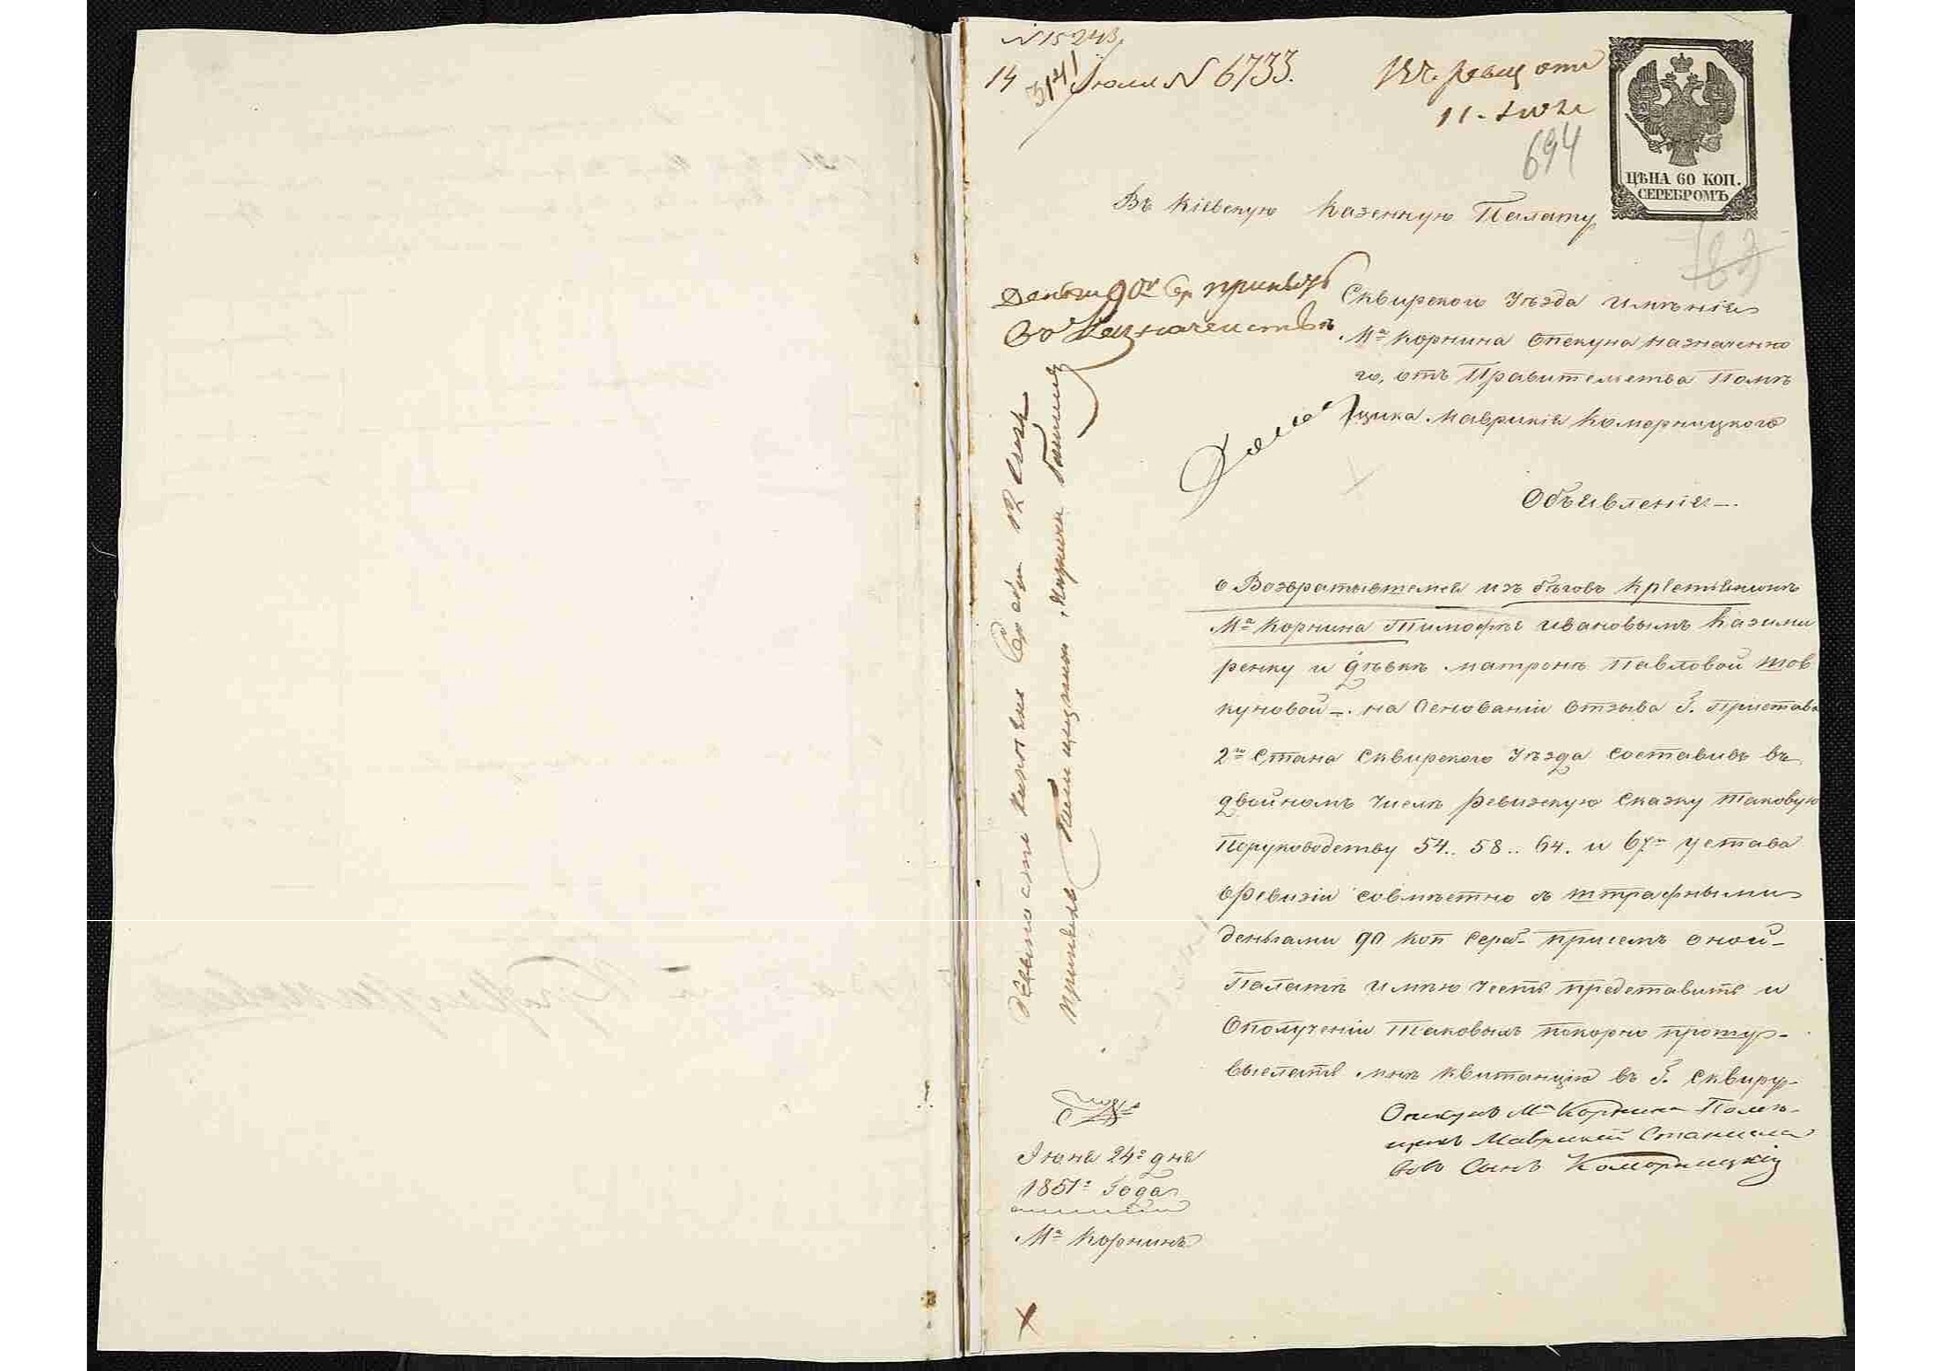 N 15243
14 Июля N 6733.
11 - Июля
694
ЦѢНА 60 КОП.
СЕРЕБРОМЪ
Въ Кіевскую Казенную Палату
Деньги 90 к Сер
въ Казначействѣ
Сквирского Уѣзда имѣнія
Мᵃ Корнина Опекуна назначенно
го, отъ Правительства Помѣ
щика Маврикія Коморницкого
Объявленіе
о Возвратившемся изъ бѣговъ крестьянинѣ
Мᵃ Корнина Тимофѣѣ Ивановымъ Казими
ренку и дѣвкѣ Матронѣ Павловой Шов
куновой на Основаніи Отзыва Г. Пристава
2ᵍᵒ Стана Сквирского Уѣзда составивъ въ
двойномъ Числѣ ревизкую Сказку таковую
Поруководству 54.. 58.. 64. и 67 устава
оРевизіи совмѣстно съ штрафными
деньгами 90 коп Сереб
Палатѣ имѣю честь представить и
Ополученіи таковымъ покорно прошу
выслать мнѣ квитанцію въ Г. Сквиру
Опекунъ Мᵃ Корнина Помѣ-
щикъ Маврикій Станисла
вовъ Сынъ Коморницкій
Девяносто копѣекъ Сереб
Іюня 24ᵒ дня
1851ᵒ Года
Мᵃ Корнинъ